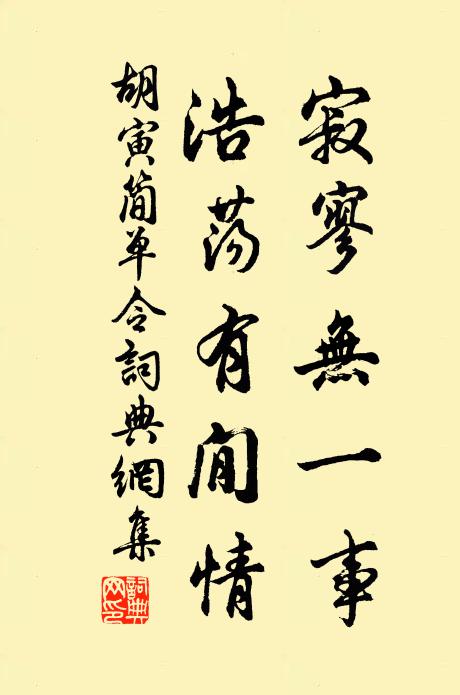 寂寥無一事
浩蕩有閒情
胡寅簡單令詞典網集
詞典網印